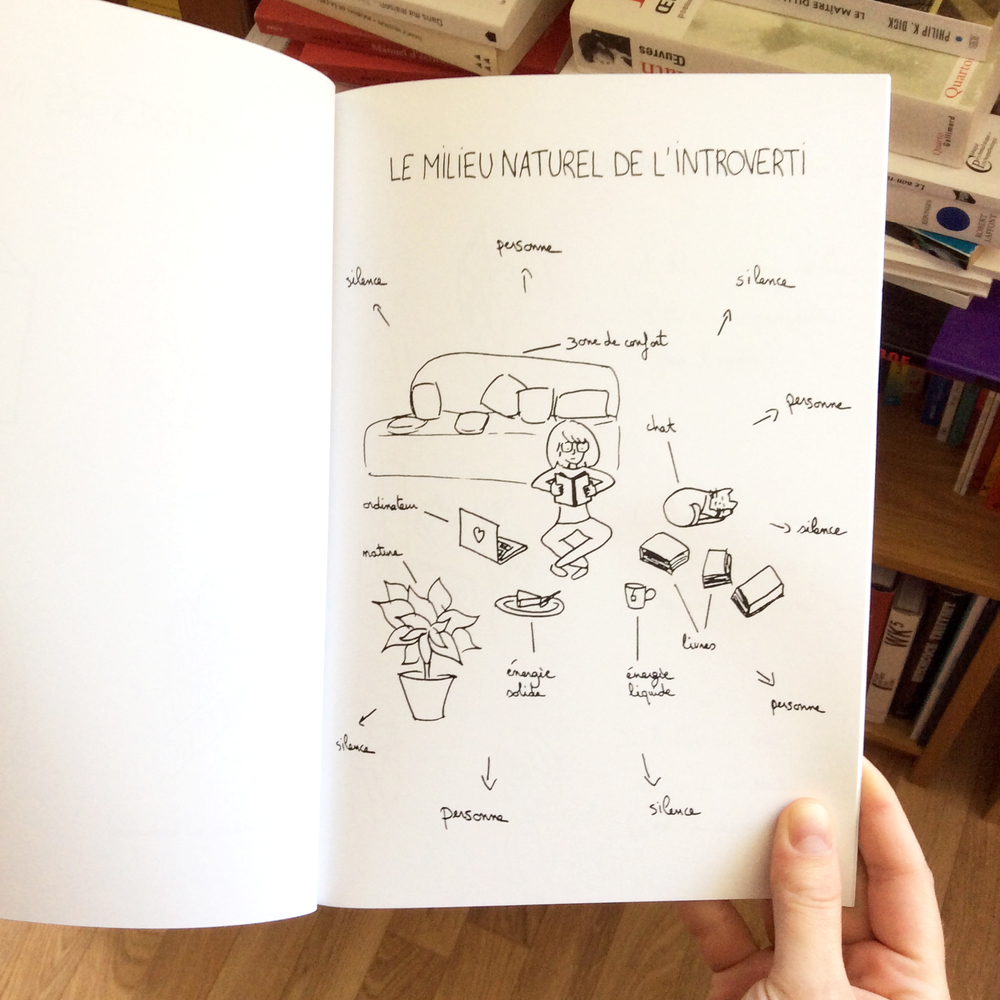 Dans ma maison
PHILIP K. DICK
LE MAÎTRE DU
Œuvres
Quarto
Quarto
Gallimard
ROBERT
LAFFONT
LE MILIEU NATUREL DE L'INTROVERTI
personne
silence
silence
zone de confort
personne
chat
ordinateur
silence
nature
livres
énergie
solide
énergie
liquide
personne
silence
personne
silence
WK5